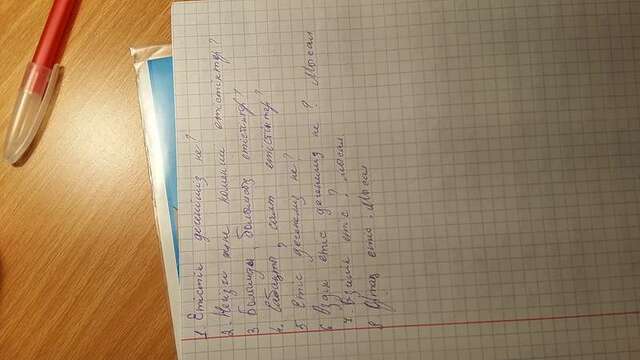 1. Етістік дегеніміз не?
2. Негізгі және көмекші етістіктер?
3 Болымды, болымсыз етістіктер?
4. Сабақты, салт етістіктер?
5 Етіс дегеніміз не?
6 Өздік етіс дегеніміз не? Мысал
7. Өзгелік етіс? мысал
8. Ортақ етіс. Мысал